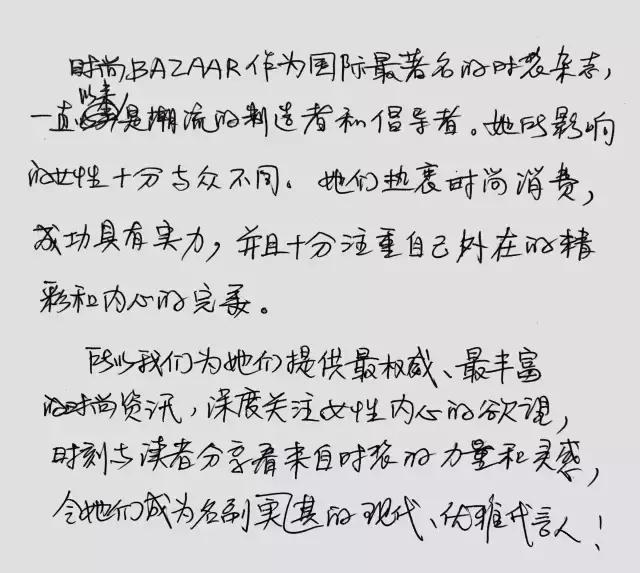 时尚BAZAAR作为国际最著名的时装杂志，
一直以来是潮流的制造者和倡导者。她所影响
的女性十分与众不同。她们热衷时尚消费，
成功具有实力，并且十分注重自己外在的精
彩和内心的完美。
所以我们为她们提供最权威、最丰富
的时尚资讯，深度关注女性内心的欲望，
时刻与读者分享着来自时装的力量和灵感，
令她们成为名副其实的现代、优雅代言人！